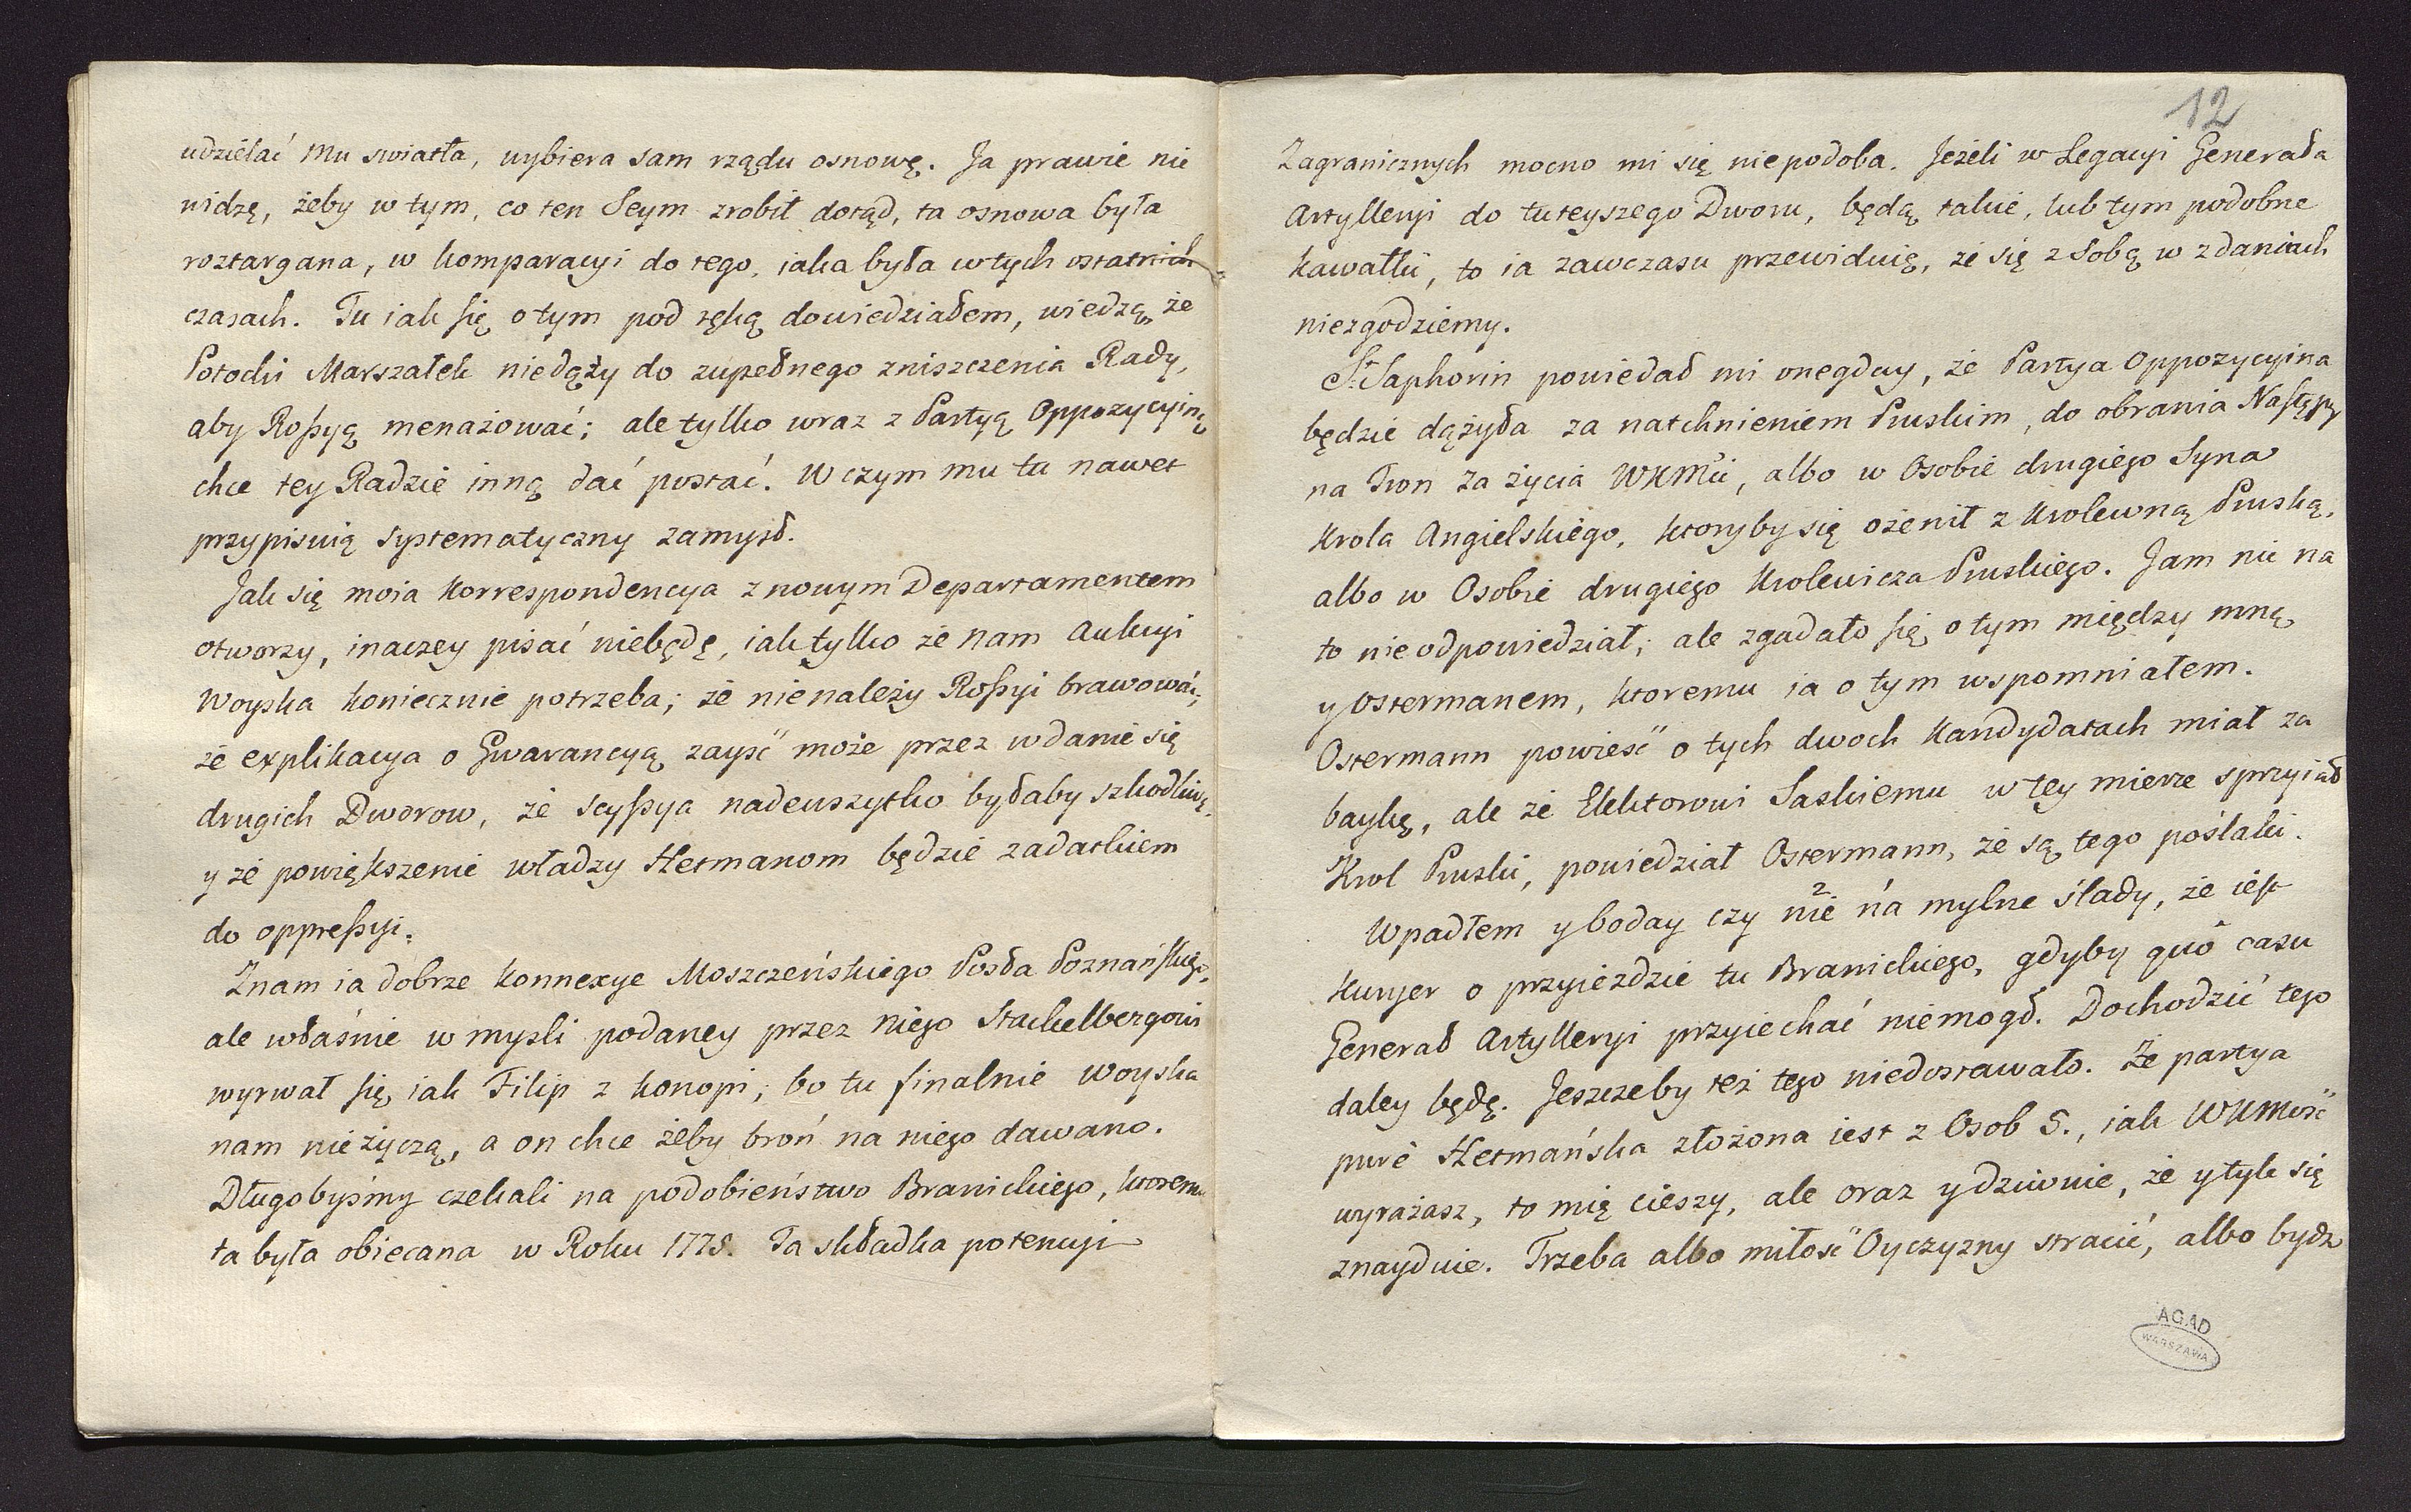 udzielać mu swiatła, wybiera sam rządu osnowę. Ja prawie nie
widzę, żeby w tym, co ten Seym zrobił dotąd, ta osnowa była
roztargana, w komparacyi do tego, iaka była w tych ostatnich
czasach. Tu iak się o tym pod ręką dowiedziałem, wiedzą, że
Potocki Marszałek niedąży do zupełnego zniszczenia Rady,
aby Rossyą menażować; ale tylko wraz z Partyą Oppozycyiną
chce tey Radzie inną dać postać. W czym mu tu nawet
przypisuią systematyczny zamysł.
Jak się moia korrespondencya z nowym Departamentem
otworzy, inaczey pisać niebędę, iak tylko że nam aukcyi
Woyska koniecznie potrzeba; że nienależy Rossyi brawować;
że explikacya o Gwarancyą zayść może przez wdanie się
drugich Dworow, że scyssya nadewszytko byłaby szkodliwą,
y że powiększenie władzy Hetmanom będzie zadatkiem
do oppressyi.
Znam ia dobrze konnexye Moszczeńskiego Posła Poznańskiego,
ale właśnie w mysli podaney przez niego Stackelbergowi
wyrwał się iak Filip z konopi; bo tu finalnie woyska
nam nieżyczą, a on chce żeby broń na niego dawano.
Długobyśmy czekali na podobieństwo Branickiego, ktoremu
ta była obiecana w Roku 1775. Ta składka potencyi
12
Zagranicznych mocno mi się niepodoba. Jeżeli w Legacyi Generała
Artylleryi do tuteyszego Dworu, będą takie, lub tym podobne
kawałki, to ia zawczasu przewiduię, że się z sobą w zdaniach
niezgodziemy.
St. Saphorin powiedał mi onegday, że Partya Oppozycyina
będzie dążyła za natchnieniem Pruskim, do obrania Następcy
na Tron za życia WKMci, albo w Osobie drugiego Syna
Krola Angielskiego, ktoryby się ożenił z Krolewną Pruską,
albo w Osobie drugiego Krolewicza Pruskiego. Jam nic na
to nieodpowiedział; ale zgadało się o tym między mną
y Ostermanem, ktoremu ia o tym wspomniałem.
Ostermann powieść o tych dwoch Kandydatach miał za
baykę, ale że Elektorowi Saskiemu w tey mierze sprzyiał
Krol Pruski, powiedział Ostermann, że są tego poślaki.
Wpadłem y boday czy nie 2 ná mylne ślady, że iest
Kuryer o przyieździe tu Branickiego, gdyby quô casu
Generał Artylleryi przyiechać niemogł. Dochodzić tego
daley będę. Jeszczeby też tego niedostawało. Że partya
purè Hetmańska złożona iest z Osob 5., iak WKMość
wyrażasz, to mię cieszy, ale oraz y dziwuie, że y tyle się
znayduie. Trzeba albo miłość Oyczyzny stracić, albo bydz
AGAD
WARSZAWA